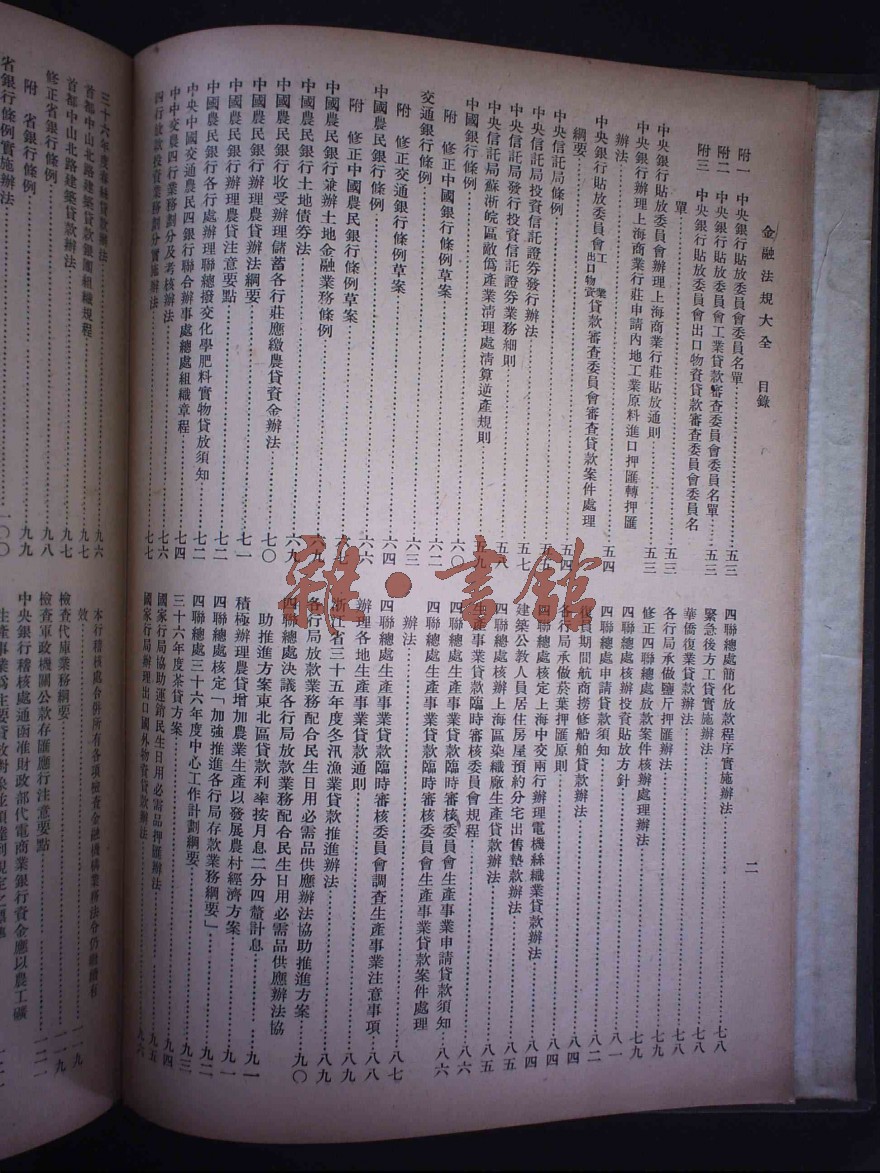 金融法規大全 目錄
二
附一 中央銀行貼放委員會委員名單……五三
附二 中央銀行貼放委員會工業貸款審查委員會委員名單……五三
附三 中央銀行貼放委員會出口物資貸款審查委員會委員名
單……五三
中央銀行貼放委員會辦理上海商業行莊貼放通則……五三
中央銀行辦理上海商業行莊申請內地工業原料進口押匯轉押匯
辦法……五四
中央銀行貼放委員會工業出口物資貸款審查委員會審查貸款案件處理
綱要……五四
中央信託局條例……五四
中央信託局投資信託證券發行辦法……五五
中央信託局發行投資信託證券業務細則……五七
中央信託局蘇浙皖區敵偽產業清理處清算逆產規則……五八
中國銀行條例……五九
附 修正中國銀行條例草案……六〇
交通銀行條例……六二
附 修正交通銀行條例草案……六三
中國農民銀行條例……六四
附 修正中國農民銀行條例草案……六六
中國農民銀行兼辦土地金融業務條例……六七
中國農民銀行土地債券法……六九
中國農民銀行收受辦理儲蓄各行莊應繳農貸資金辦法……六九
中國農民銀行辦理農貸辦法綱要……七〇
中國農民銀行辦理農貸注意要點……七一
中國農民銀行各行處辦理聯總撥交化學肥料實物貸放須知……七二
中央中國交通農民四銀行聯合辦事處總處組織章程……七二
中中交農四行業務劃分及考核辦法……七四
四行放款投資業務劃分實施辦法……七六
七七
四聯總處簡化放款程序實施辦法……七八
緊急後方工貸實施辦法……七八
華僑復業貸款辦法……七八
各行局承做鹽斤押匯辦法……七八
修正四聯總處放款案件核辦處理辦法……七九
四聯總處核辦投資貼放方針……八一
四聯總處申請貸款須知……八二
復員期間航商撈修船舶貸款辦法……八四
各行局承做菸葉押匯原則……八四
四聯總處核定上海中交兩行辦理電機絲織業貸款辦法……八四
建築公教人員居住房屋預約分宅出售墊款辦法……八五
四聯總處核辦上海區染織廠生產貸款辦法……八五
生產事業貸款臨時審核委員會規程……八六
四聯總處生產事業貸款臨時審核委員會生產事業申請貸款須知……八六
四聯總處生產事業貸款臨時審核委員會生產事業貸款案件處理
辦法……八七
四聯總處生產事業貸款臨時審核委員會調查生產事業注意事項……八八
辦理各地生產事業貸款通則……八九
浙江省三十五年度冬汛漁業貸款推進辦法……八九
各行局放款業務配合民生日用必需品供應辦法協助推進方案……九〇
四聯總處決議各行局放款業務配合民生日用必需品供應辦法協
助推進方案東北區貸款利率按月息二分四釐計息……九一
積極辦理農貸增加農業生產以發展農村經濟方案……九一
四聯總處核定「加強推進各行局存款業務綱要」……九二
四聯總處三十六年度中心工作計劃綱要……九三
三十六年度茶貸方案……九四
國家行局協助運銷民生日用必需品押匯辦法……九五
國家行局辦理出口國外物資貸款辦法……九六
三十六年度春絲貸款辦法……九六
首都中山北路建築貸款銀團組織規程……九七
首都中山北路建築貸款辦法……九七
修正省銀行條例……九八
附 省銀行條例……九九
省銀行條例實施辦法……一〇〇
本行稽核處合併所有各項檢查金融機構業務法令仍繼續有
效……一一九
檢查代庫業務綱要……一一九
檢查軍政機關公款存匯應行注意要點……一二一
中央銀行稽核處通函准財政部代電商業銀行資金應以農工礦
雜·書館